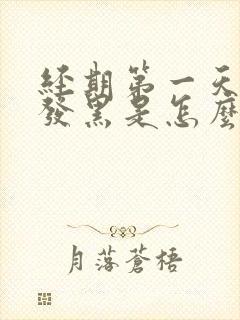 經期第一天
發黑是怎麼
月落蒼梧